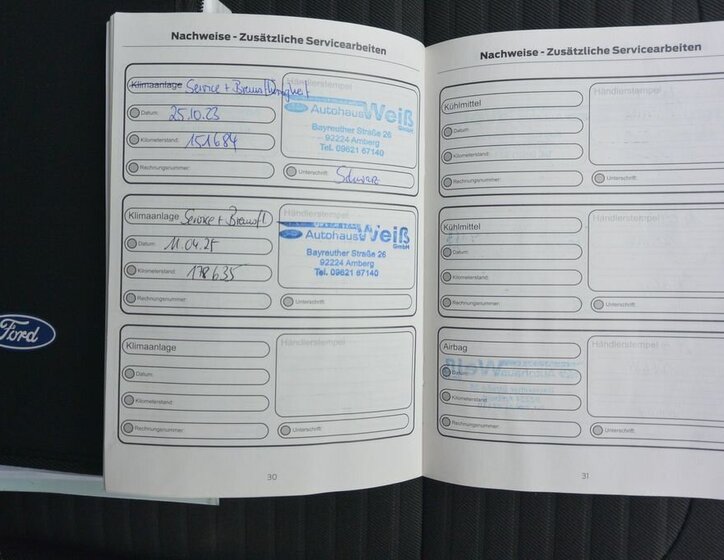 Nachweise - Zusätzliche Servicearbeiten
Klimaanlage Service + Bremsflüssigkeit
Händlerstempel
Datum: 25.10.23
Kilometerstand: 151684
Rechnungsnummer:
Autohaus Weiß GmbH
Bayreuther Straße 26
92224 Amberg
Tel. 09621 67140
Unterschrift: Schwarz
Klimaanlage Service + Bremsfl
Datum: 11.04.25
Kilometerstand: 178635
Rechnungsnummer:
Autohaus Weiß GmbH
Bayreuther Straße 26
92224 Amberg
Tel. 09621 67140
Unterschrift:
Klimaanlage
Händlerstempel
Datum:
Kilometerstand:
Rechnungsnummer:
Unterschrift:
30
Nachweise - Zusätzliche Servicearbeiten
Kühlmittel
Händlerstempel
Datum:
Kilometerstand:
Rechnungsnummer:
Unterschrift:
Kühlmittel
Händlerstempel
Datum:
Kilometerstand:
Rechnungsnummer:
Unterschrift:
Airbag
Händlerstempel
Datum:
Kilometerstand:
Rechnungsnummer:
Unterschrift:
31
Ford